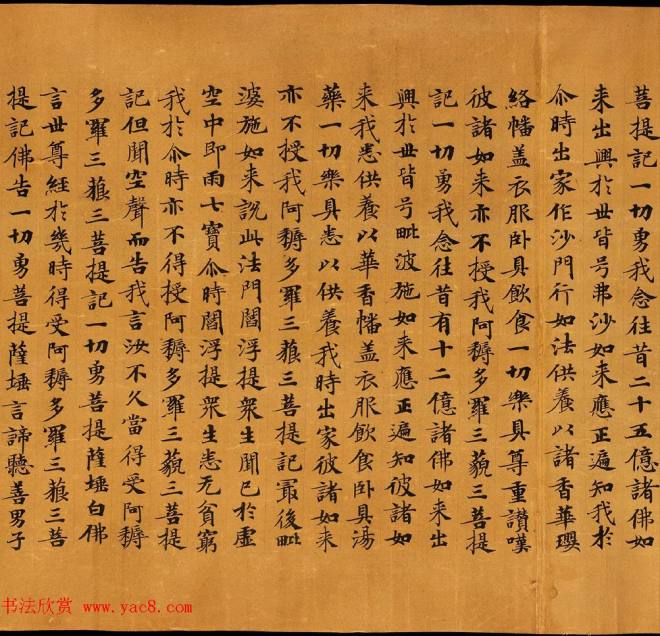 菩提記一切勇我念往昔二十五億諸佛如
来出興於世皆号弗沙如来應正遍知我於
尒時出家作沙門行如法供養以諸香華瓔
絡幡盖衣服卧具飲食一切樂具尊重讃嘆
彼諸如来亦不授我阿耨多羅三藐三菩提
記一切勇我念往昔有十二億諸佛如来出
興於世皆号毗波施如来應正遍知彼諸如
来我悉供養以華香幡盖衣服飲食卧具湯
藥一切樂具悉以供養我時出家彼諸如来
亦不授我阿耨多羅三藐三菩提記冣後毗
婆施如来說此法門閻浮提衆生聞已於虛
空中即雨七寶尒時閻浮提衆生悉无貧窮
我於尒時亦不得授阿耨多羅三藐三菩提
記但聞空聲而告我言汝不久當得受阿耨
多羅三藐三菩提記一切勇菩提薩埵白佛
言世尊經於幾時得受阿耨多羅三藐三菩
提記佛告一切勇菩提薩埵言諦聽善男子
书法欣赏 www.yac8.com